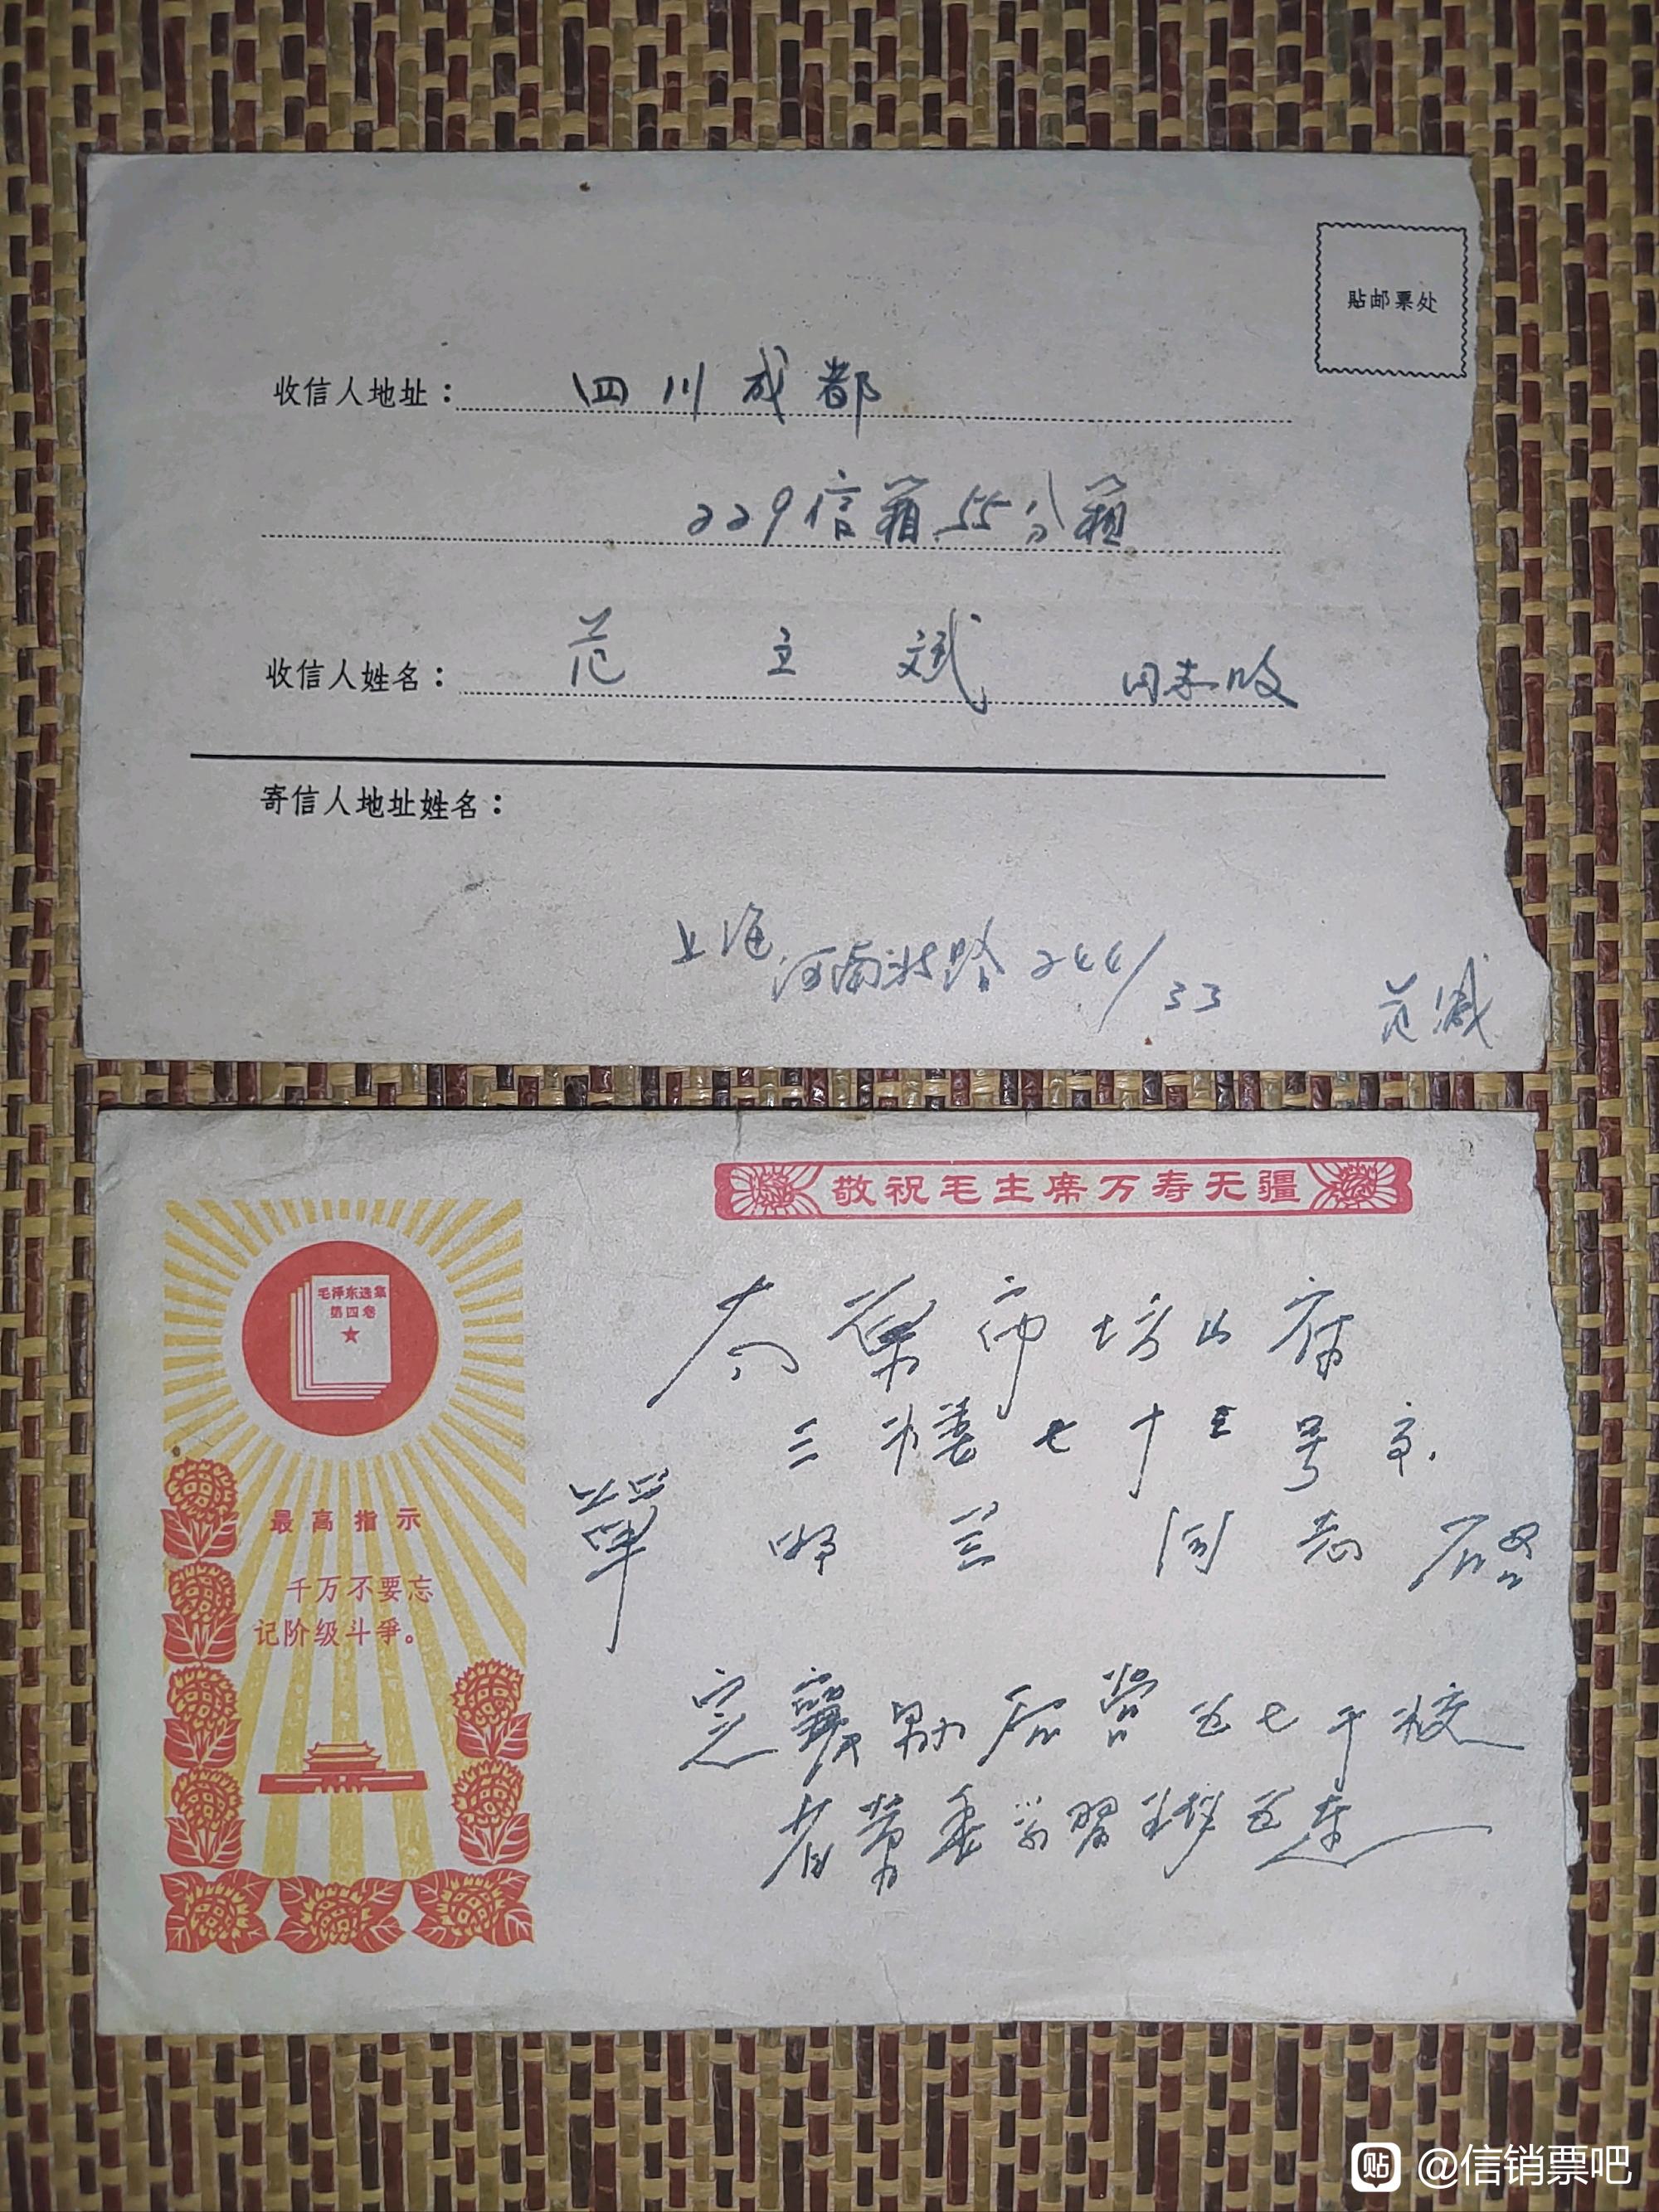 贴邮票处
收信人地址： 四川成都
229信箱55分箱
收信人姓名： 范立斌 同志收
寄信人地址姓名：
上海河南北路244/33 范
敬祝毛主席万寿无疆
毛泽东选集
第四卷
最高指示
千万不要忘
记阶级斗爭。
太原市坊山府
三楼七十三号
单 兰 同志启
定襄县后营五七干校
学习班五连
贴 @信销票吧